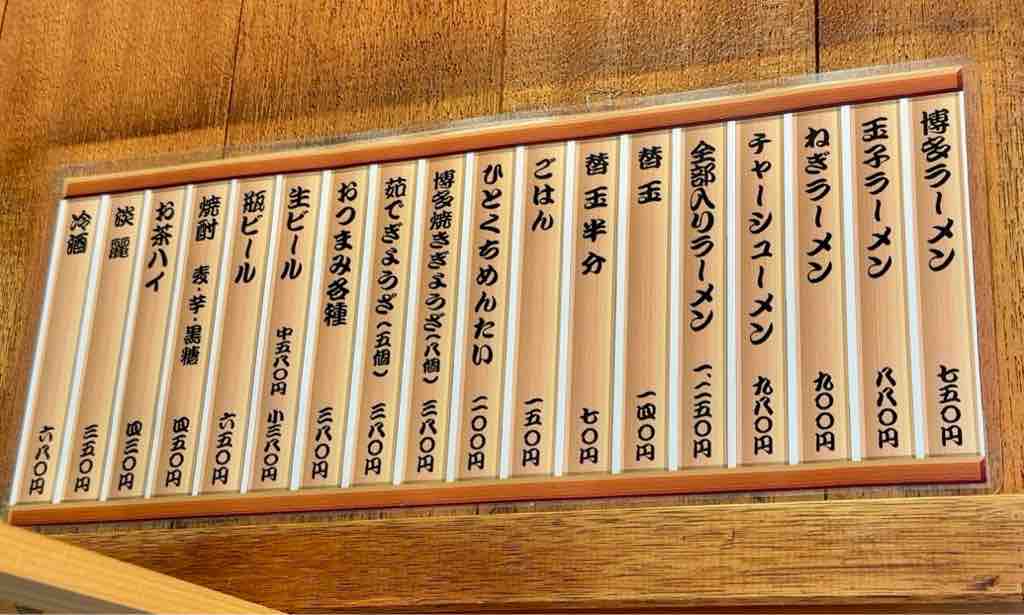 博多ラーメン 七五〇円
玉子ラーメン 八八〇円
ねぎラーメン 九〇〇円
チャーシューメン 九八〇円
全部入りラーメン 一、二五〇円
替玉 一四〇円
替玉半分 七〇円
ごはん 一五〇円
ひとくちめんたい 二〇〇円
博多焼きぎょうざ(八個) 三八〇円
茹でぎょうざ(五個) 三八〇円
おつまみ各種 三八〇円
生ビール 中五八〇円 小三八〇円
瓶ビール 六五〇円
焼酎 麦・芋・黒糖 四五〇円
お茶ハイ 四三〇円
淡麗 三五〇円
冷酒 六八〇円